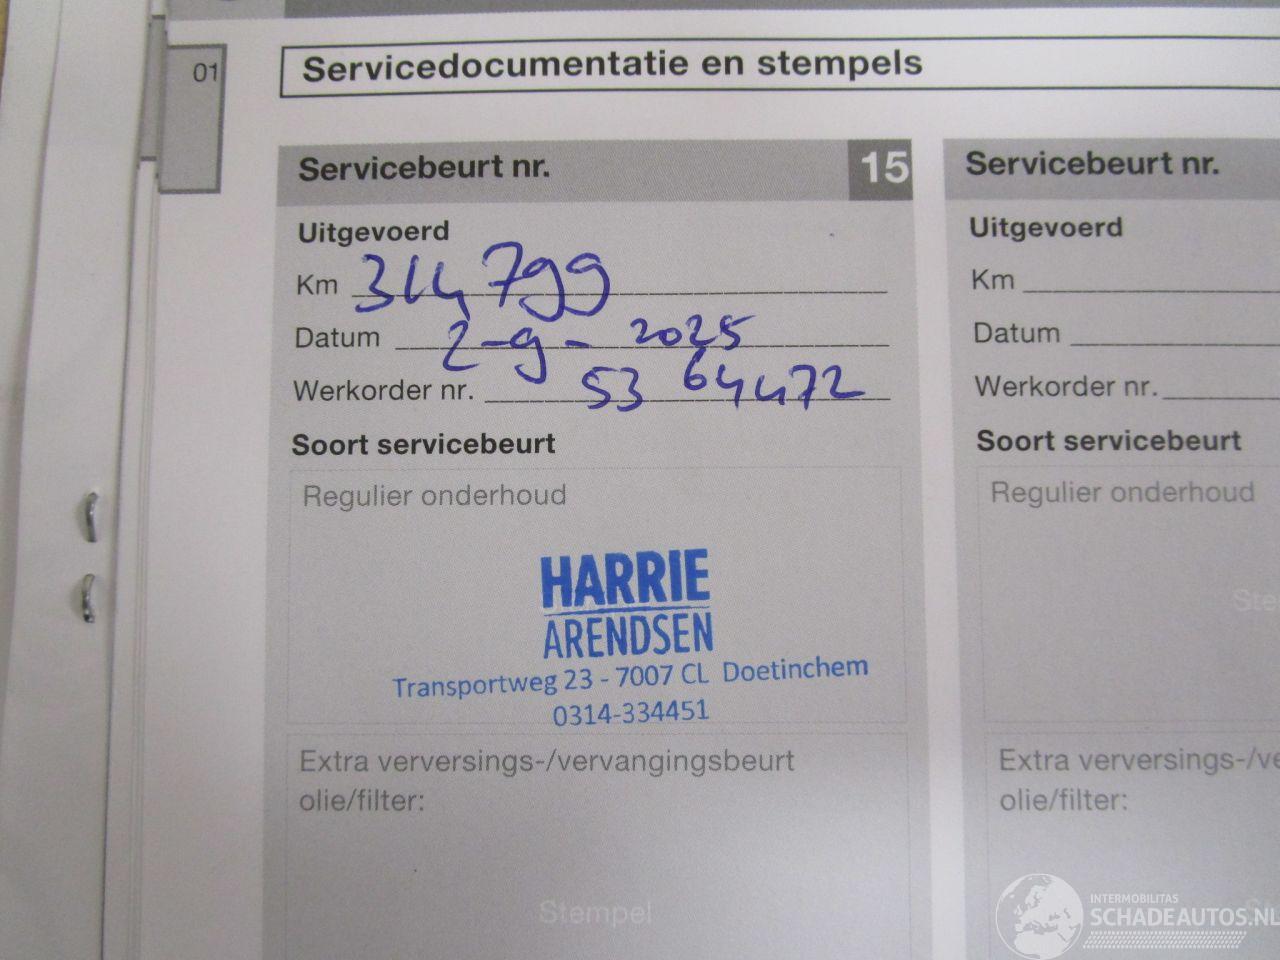 01
Servicedocumentatie en stempels
Servicebeurt nr. 15
Uitgevoerd
Km 314799
Datum 2-9-2025
Werkorder nr. 5364472
Soort servicebeurt
Regulier onderhoud
HARRIE
ARENDSEN
Transportweg 23 - 7007 CL Doetinchem
0314-334451
Extra verversings-/vervangingsbeurt
olie/filter:
Stempel
Servicebeurt nr.
Uitgevoerd
Km
Datum
Werkorder nr.
Soort servicebeurt
Regulier onderhoud
Ste
Extra verversings-/ve
olie/filter:
INTERMOBILITAS
SCHADEAUTOS.NL